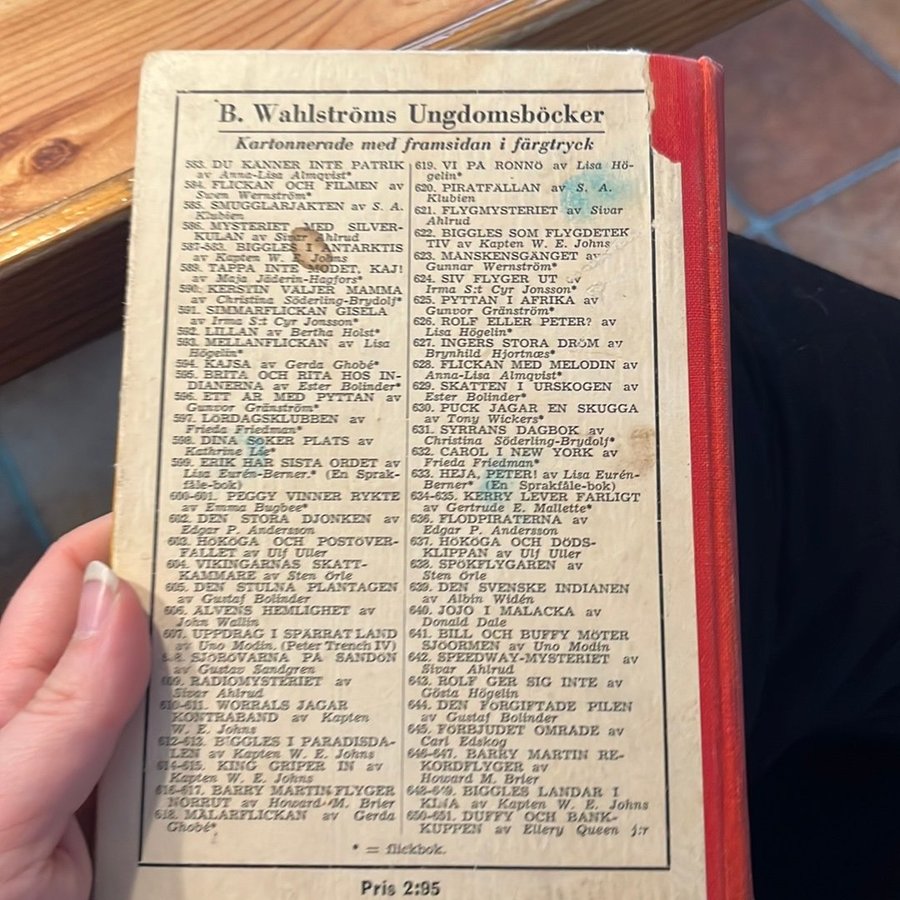 B. Wahlströms Ungdomsböcker
Kartonnerade med framsidan i färgtryck
583. DU KÄNNER INTE PATRIK
av Anna-Lisa Almqvist*
584. FLICKAN OCH FILMEN av
Sven Wernström*
585. SMUGGLARJAKTEN av S. A.
Klubien
586. MYSTERIET MED SILVER-
KULAN av Sivar Ahlrud
587-588. BIGGLES I ANTARKTIS
av Kapten W. E. Johns
589. TAPPA INTE MODET, KAJ!
av Maja Jäderin-Hagfors*
590. KERSTIN VÄLJER MAMMA
av Christina Söderling-Brydolf*
591. SIMMARFLICKAN GISELA
av Irma S:t Cyr Jonsson*
592. LILLAN av Bertha Holst*
593. MELLANFLICKAN av Lisa
Högelin*
594. KAJSA av Gerda Ghobé*
595. BRITA OCH RITA HOS IN-
DIANERNA av Ester Bolinder*
596. ETT ÅR MED PYTTAN av
Gunvor Gränström*
597. LÖRDAGSKLUBBEN av
Frieda Friedman*
598. DINA SÖKER PLATS av
Kathrine Lie*
599. ERIK HAR SISTA ORDET av
Lisa Eurén-Berner.* (En Språk-
fåle-bok)
600-601. PEGGY VINNER RYKTE
av Emma Bugbee*
602. DEN STORA DJONKEN av
Edgar P. Andersson
603. HÖKÖGA OCH POSTÖVER-
FALLET av Ulf Uller
604. VIKINGARNAS SKATT-
KAMMARE av Sten Örle
605. DEN STULNA PLANTAGEN
av Gustaf Bolinder
606. ÄLVENS HEMLIGHET av
John Wallin
607. UPPDRAG I SPÄRRAT LAND
av Uno Modin. (Peter Trench IV)
608. SJÖRÖVARNA PÅ SANDÖN
av Gustav Sandgren
609. RADIOMYSTERIET av
Sivar Ahlrud
610-611. WORRALS JAGAR
KONTRABAND av Kapten
W. E. Johns
612-613. BIGGLES I PARADISDA-
LEN av Kapten W. E. Johns
614-615. KING GRIPER IN av
Kapten W. E. Johns
616-617. BARRY MARTIN FLYGER
NORRUT av Howard M. Brier
618. MÅLARFLICKAN av Gerda
Ghobé*
619. VI PÅ RONNÖ av Lisa Hö-
gelin*
620. PIRATFÄLLAN av S. A.
Klubien
621. FLYGMYSTERIET av Sivar
Ahlrud
622. BIGGLES SOM FLYGDETEK
TIV av Kapten W. E. Johns
623. MÅNSKENSGÄNGET av
Gunnar Wernström*
624. SIV FLYGER UT av
Irma S:t Cyr Jonsson*
625. PYTTAN I AFRIKA av
Gunvor Gränström*
626. ROLF ELLER PETER? av
Lisa Högelin*
627. INGERS STORA DRÖM av
Brynhild Hjortnæs*
628. FLICKAN MED MELODIN av
Anna-Lisa Almqvist*
629. SKATTEN I URSKOGEN av
Ester Bolinder*
630. PUCK JAGAR EN SKUGGA
av Tony Wickers*
631. SYRRANS DAGBOK av
Christina Söderling-Brydolf*
632. CAROL I NEW YORK av
Frieda Friedman*
633. HEJA, PETER! av Lisa Eurén-
Berner* (En Språkfåle-bok)
634-635. KERRY LEVER FARLIGT
av Gertrude E. Mallette*
636. FLODPIRATERNA av
Edgar P. Andersson
637. HÖKÖGA OCH DÖDS-
KLIPPAN av Ulf Uller
638. SPÖKFLYGAREN av
Sten Örle
639. DEN SVENSKE INDIANEN
av Albin Widén
640. JOJO I MALACKA av
Donald Dale
641. BILL OCH BUFFY MÖTER
SJÖORMEN av Uno Modin
642. SPEEDWAY-MYSTERIET av
Sivar Ahlrud
643. ROLF GER SIG INTE av
Gösta Högelin
644. DEN FÖRGIFTADE PILEN
av Gustaf Bolinder
645. FÖRBJUDET OMRÅDE av
Carl Edskog
646-647. BARRY MARTIN RE-
KORDFLYGER av
Howard M. Brier
648-649. BIGGLES LANDAR I
KINA av Kapten W. E. Johns
650-651. DUFFY OCH BANK-
KUPPEN av Ellery Queen j:r
* = flickbok.
Pris 2:95